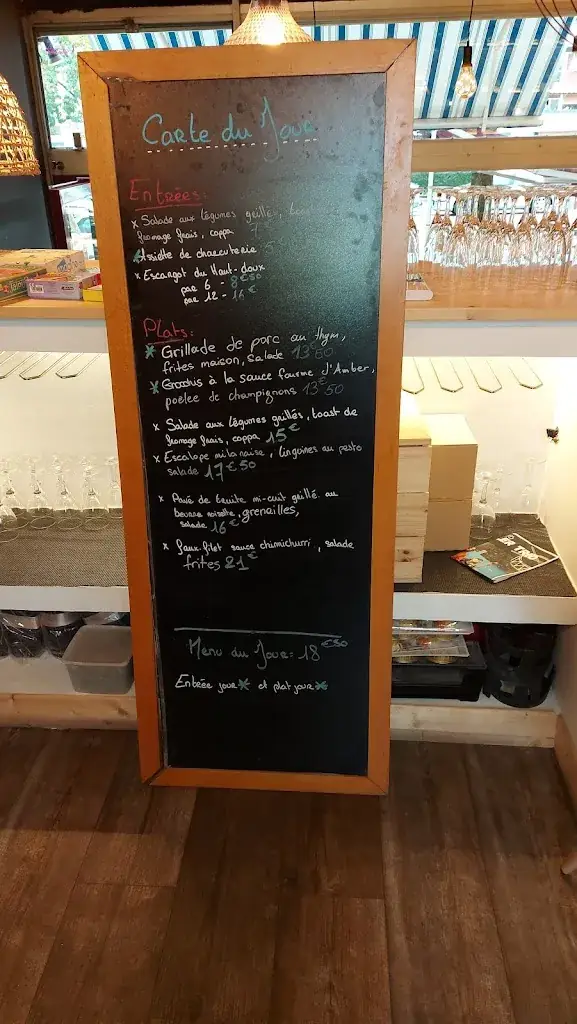 Carte du Jour
Entrées:
x Salade aux légumes grillés, toast
fromage frais, coppa 7
* Assiette de charcuterie 5
x Escargot du Haut-doux
par 6 - 8€50
par 12 - 16€
Plats:
* Grillade de porc au thym,
frites maison, salade 13€50
* à la sauce fourme d'Amber,
poêlée de champignons 13€50
x Salade aux légumes grillés, toast de
fromage frais, coppa 15€
x Escalope milanaise, linguines au pesto
salade 17€50
x Pavé de truite mi-cuit grillé au
beurre noisette, grenailles,
salade 16€
x faux-filet sauce chimichurri, salade
frites 21€
Menu du Jour: 18€50
Entrée jour* et plat jour*